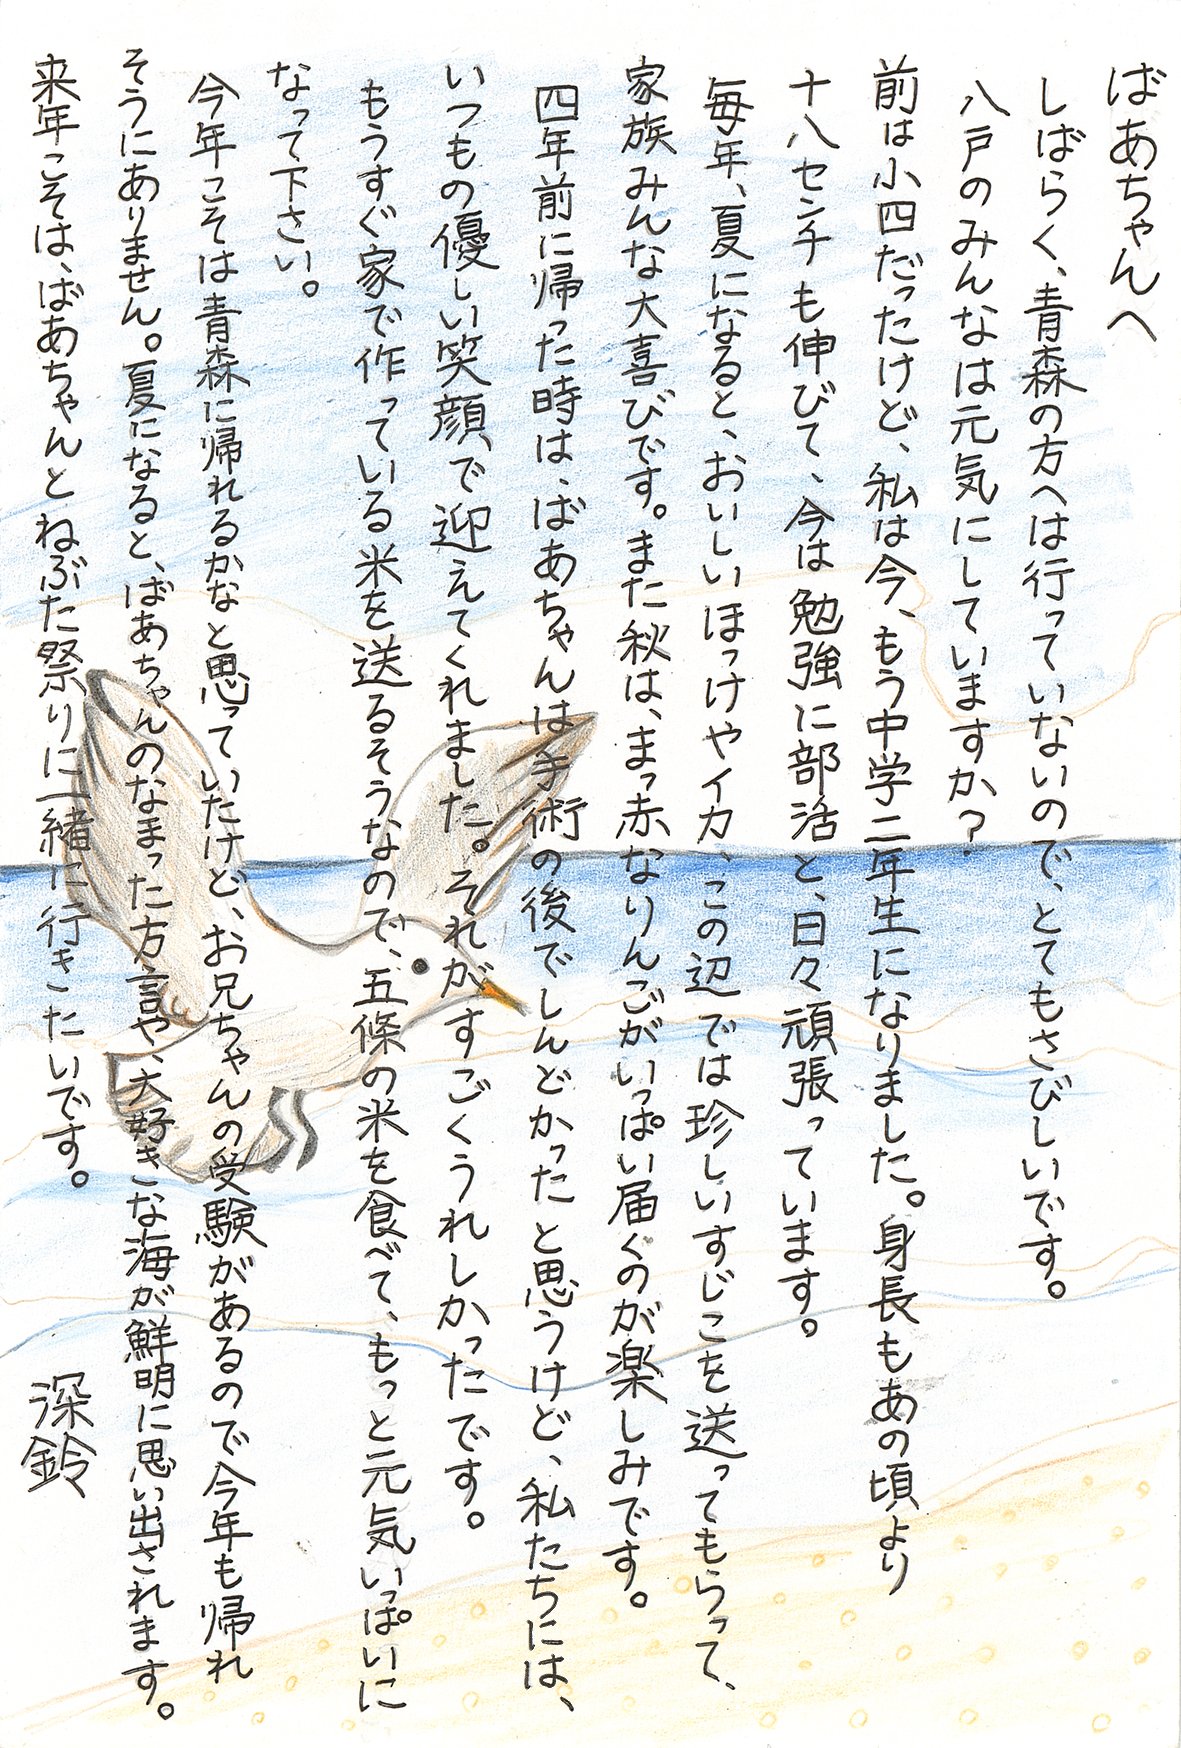 ばあちゃんへ
しばらく、青森の方へは行っていないので、とてもさびしいです。
八戸のみんなは元気にしていますか？
前は小四だったけど、私は今、もう中学二年生になりました。身長もあの頃より
十八センチも伸びて、今は勉強に部活と、日々頑張っています。
毎年、夏になると、おいしいほっけやイカ、この辺では珍しいすじこを送ってもらって、
家族みんな大喜びです。また秋は、まっ赤なりんごがいっぱい届くのが楽しみです。
四年前に帰った時は、ばあちゃんは手術の後でしんどかったと思うけど、私たちには、
いつもの優しい笑顔で迎えてくれました。それがすごくうれしかったです。
もうすぐ家で作っている米を送るそうなので、五條の米を食べて、もっと元気いっぱいに
なって下さい。
今年こそは青森に帰れるかなと思っていたけど、お兄ちゃんの受験があるので今年も帰れ
そうにありません。夏になると、ばあちゃんのなまった方言や、大好きな海が鮮明に思い出されます。
来年こそは、ばあちゃんとねぶた祭りに一緒に行きたいです。
深鈴